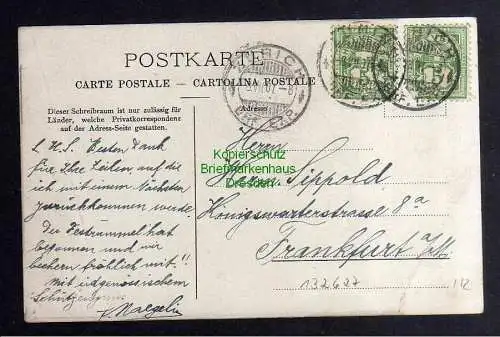 POSTKARTE
CARTE POSTALE – CARTOLINA POSTALE
Dieser Schreibraum ist nur zulässig für
Länder, welche Privatkorrespondenz
auf der Adress-Seite gestatten.
Adresse
ZÜRICH
Kopierschutz
Briefmarkenhaus
Dresden
L. H. S. Besten Dank
für Ihre Zeilen, auf die
ich mit einem Nächsten
zurückkommen werde.
Der Festrummel hat
begonnen und wir
bechern fröhlich mit!!
Mit eidgenössischem
Herrn
Herrn Sippold
Königswarterstrasse 8a
Frankfurt a/M.
132627